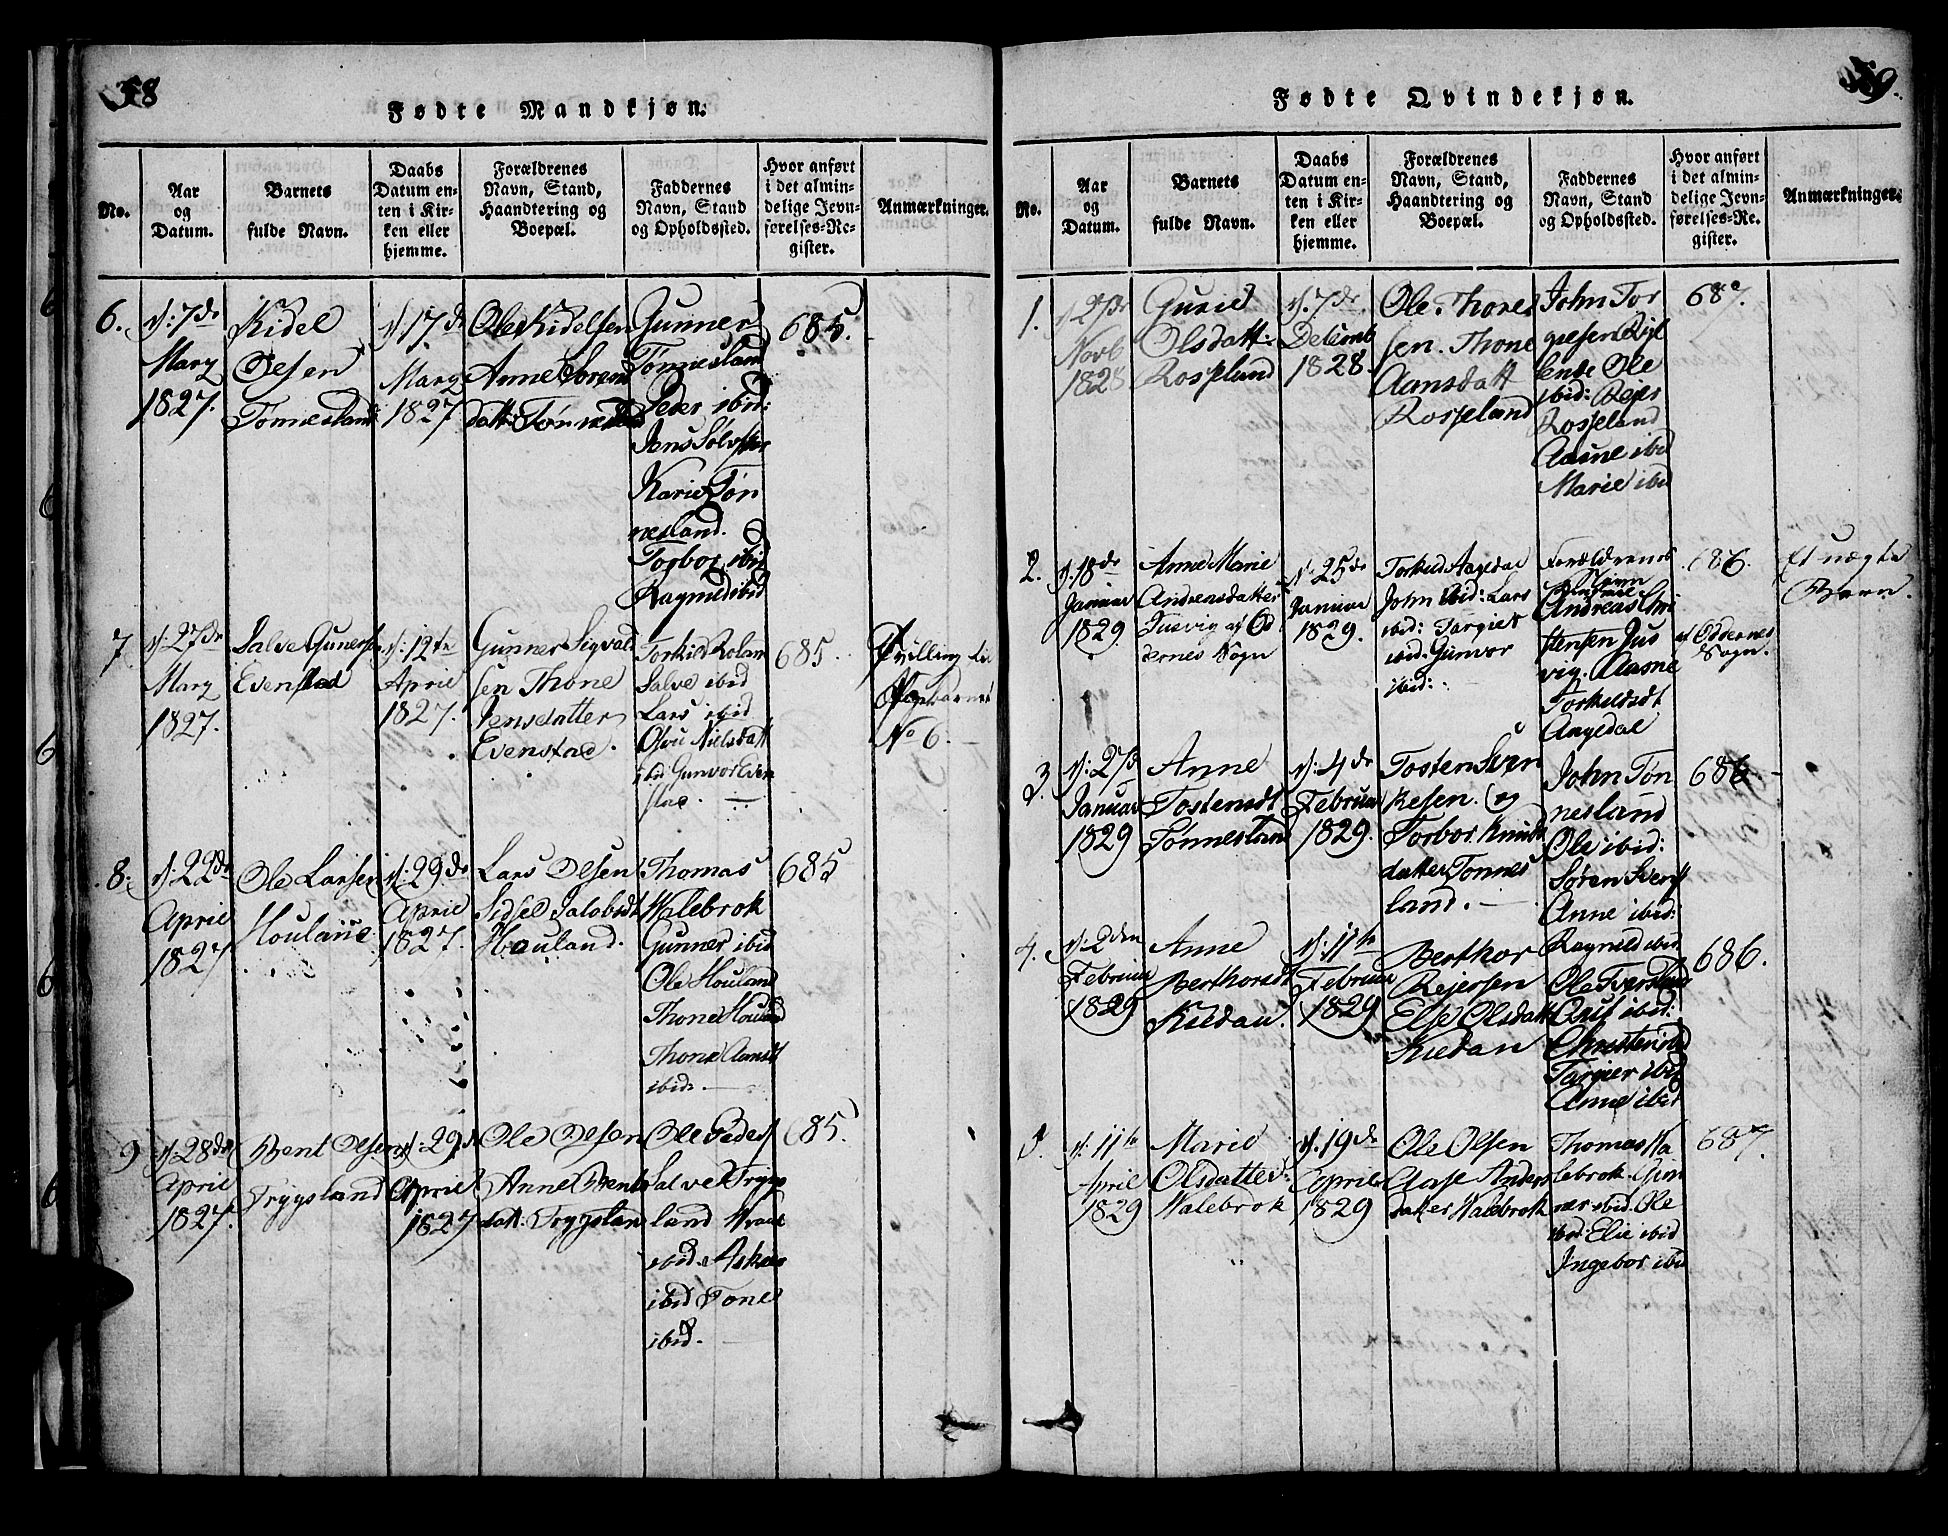 58
Fødte Mandkjøn.
No.
Aar
og
Datum.
Barnets
fulde Navn.
Daabs
Datum en-
ten i Kir-
ken eller
hjemme.
Forældrenes
Navn, Stand,
Haandtering og
Boepæl.
Faddernes
Navn, Stand
og Opholdssted.
Hvor anført
i det almin-
delige Jevn-
førelses-Re-
gister.
Anmærkninger.
6.
d. 7de
Marz
1827.
Kidel
Olsen
Tønnesland
d. 17de
Marz
1827
Ole Kidelsen
Anne Sørens
datt: Tønnesland
Gunner
Tønnesland
Peder ibid:
Jens
Karie Tøn
nesland.
Torbor ibid
Ragnild ibid
685.
7
d. 27de
Marz
1827.
Salve Gunersen
Evenstad
d. 12te
April
1827.
Gunner Sigvald
sen Thone
Jensdatter
Evenstad.
Torkild
Salve ibid
Lars ibid
Nielsdatt
ibid Gunvor Even
stad.
685.
Tvilling til
No 6.
8.
d. 22de
April
1827
Ole Larsen
Houland
d. 29de
April
1827.
Lars Olsen
Sidsel Jakobsdt
Houland.
Thomas
Walebrok
Gunner ibid
Ole Houland
Thone Houland
Thone Aansdt
ibid.
685
9
d. 28de
April
1827.
Bent Olsen
Trygsland
d. 29de
April
1827
Ole Olsen
Anne Bents
datt: Trygsland
Ole Peders
Salve Trygs
land
ibid Asbiør
ibid Tone
ibid.
685.
59.
Fødte Qvindekjøn.
No.
Aar
og
Datum.
Barnets
fulde Navn.
Daabs
Datum en-
ten i Kir-
ken eller
hjemme.
Forældrenes
Navn, Stand,
Haandtering og
Boepæl.
Faddernes
Navn, Stand
og Opholdssted.
Hvor anført
i det almin-
delige Jevn-
førelses-Re-
gister.
Anmærkninger.
1.
Novb
1828
Gurie
Olsdatt:
Rosseland
d. 7de
Decemb
1828.
Ole Thores
sen. Thone
Aansdatt
Rosseland
John Tor
giesen
Ole
ibid: Reier
Rosseland
Aasne ibid
Marie ibid
2.
d. 18de
Januar
1829
Anne Marie
Andreasdatter
Jusvig af Od
dernes Sogn
d. 25de
Januar
1829.
Torkild Aagedal
John ibid: Lars
ibid: Targier
ibid. Gunvor
ibid:
Forældrenes
Navn
Andreas Chri
stensen Jus
vig. Aasne
Torkildsdt
Aagedal
686.
af Oddernes
Sogn.
Et uægte
Barn.
3.
d. 27de
Januar
1829
Anne
Tostensdt
Tønnesland
d. 4de
Februar
1829.
Tosten Sven
kesen. og
Torbor Knuds
datter Tønnes
land.
John Tøn
nesland
Ole ibid:
Søren Svens
Anne ibid:
Ragnild ibid
686.
4.
d. 2den
Februar
1829
Anne
Berthorsdt
Kiedan.
d. 11te
Februar
1829
Berthor
Reiersen
Else Olsdatt
Kiedan
Ole
ibid:
Christen ibid
Targier ibid
Anne ibid
686.
5.
d. 11te
April
1829
Marie
Olsdatter
Walebrok
d. 19de
April
1829
Ole Olsen
Aase Anders
datter Walebrok
Thomas Wa
lebrok. Gun
nar ibid. Ole
ibid. Elie ibid
Ingebor ibid
687.